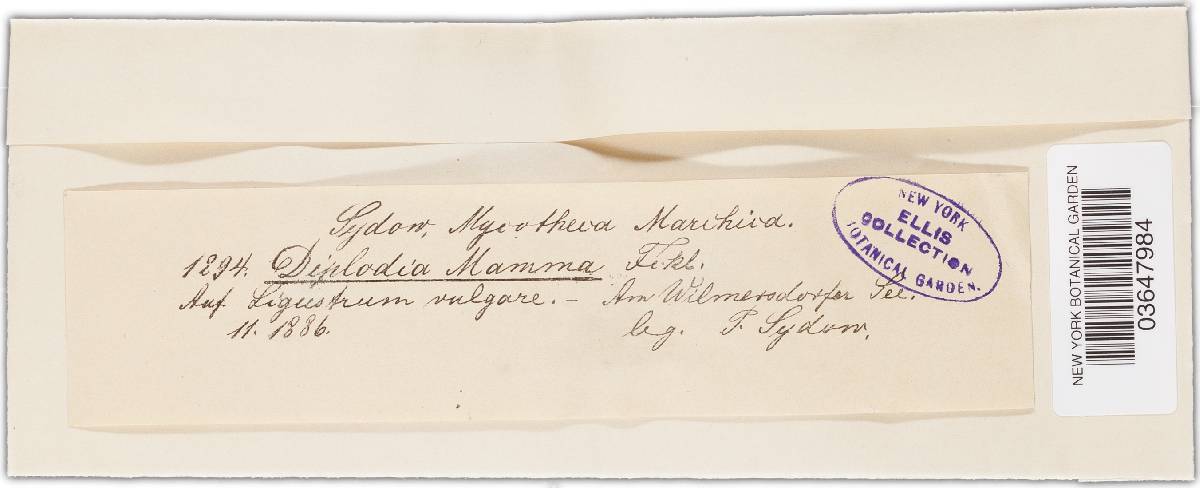 Sydow, Mycotheca Marchica.
1294. Diplodia Mamma Fckl.
Auf Ligustrum vulgare. – Am Wilmersdorfer See.
11. 1886. leg. P. Sydow.
NEW YORK
ELLIS
COLLECTION
BOTANICAL GARDEN.
NEW YORK BOTANICAL GARDEN
03647984